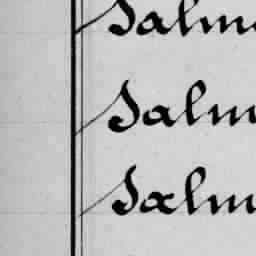 Salm
Salm
Salm